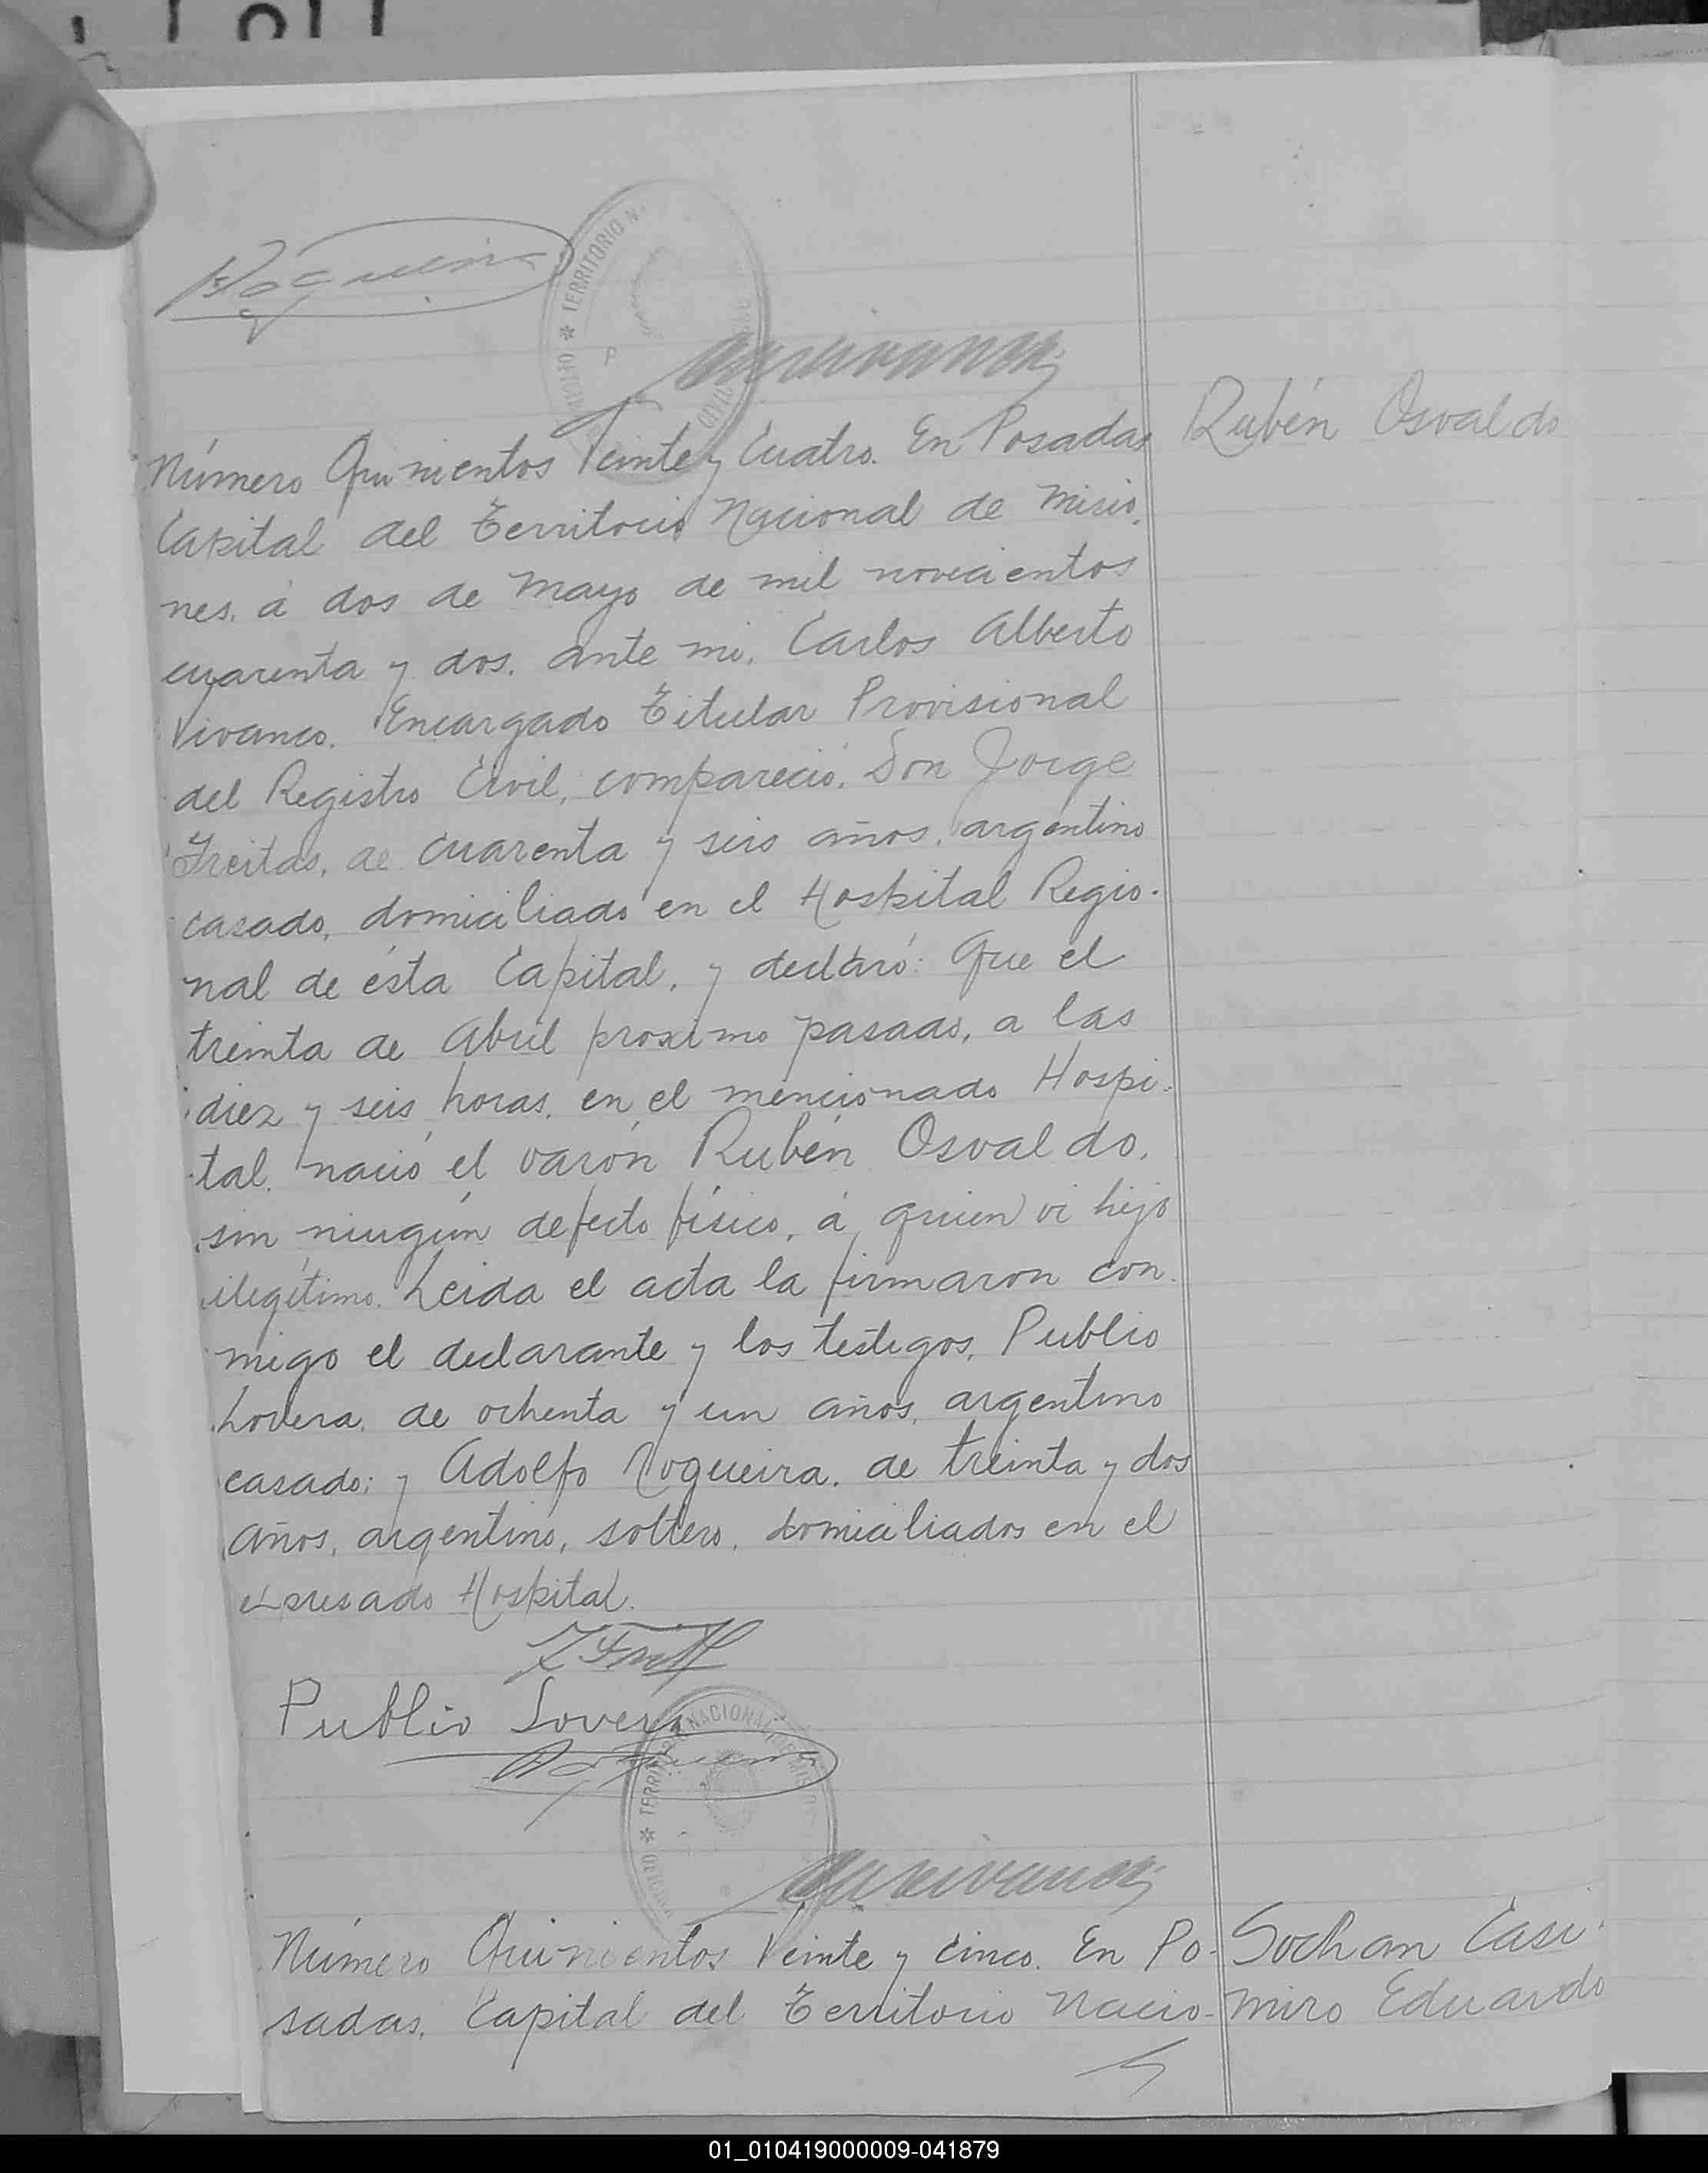 TERRITORIO N
Número Quinientos Veinte y Cuatro. En Posadas
Rubén Osvaldo
Capital del Territorio Nacional de Misio.
nes. á dos de Mayo de mil novecientos
cuarenta y dos. ante mi. Carlos Alberto
Vivanco. Encargado Titular Provisional
del Registro Civil, compareció. Don Jorge
Freitas, de cuarenta y seis años, argentino
casado, domiciliado en el Hospital Regio-
nal de ésta Capital, y declaró: Que el
treinta de Abril proximo pasado, a las
diez y seis horas. en el mencionado Hospi-
tal. nació el varón Rubén Osvaldo.
sin ningún defecto físico, á quien vi hijo
ilegítimo. Leida el acta la firmaron con
migo el declarante y los testigos, Publio
Lovera, de ochenta y un años, argentino
casado; y Adolfo Nogueira. de treinta y dos
años, argentino, soltero, domiciliados en el
expresado Hospital.
Publio Lovera
TERRITORIO NACIONAL DE MISIONES
Número Quinientos Veinte y Cinco. En Po-
Sochan Casi
sadas, Capital del Territorio Nacio-
miro Eduardo
01_010419000009-041879